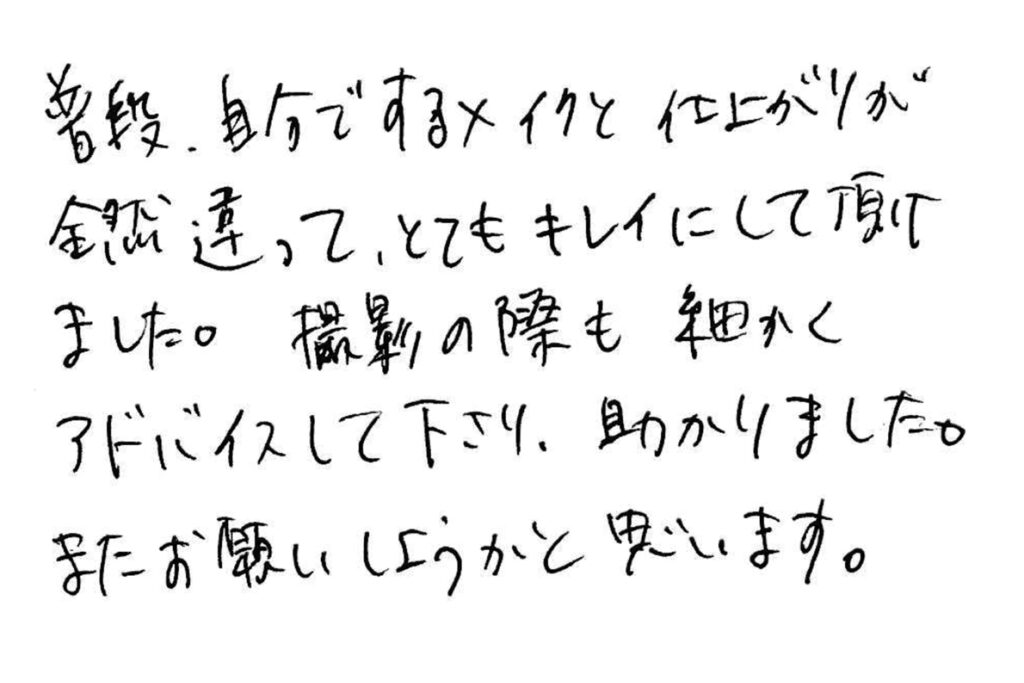 普段、自分でするメイクと仕上がりが
全然違って、とてもキレイにして頂け
ました。撮影の際も細かく
アドバイスして下さり、助かりました。
またお願いしようかと思います。